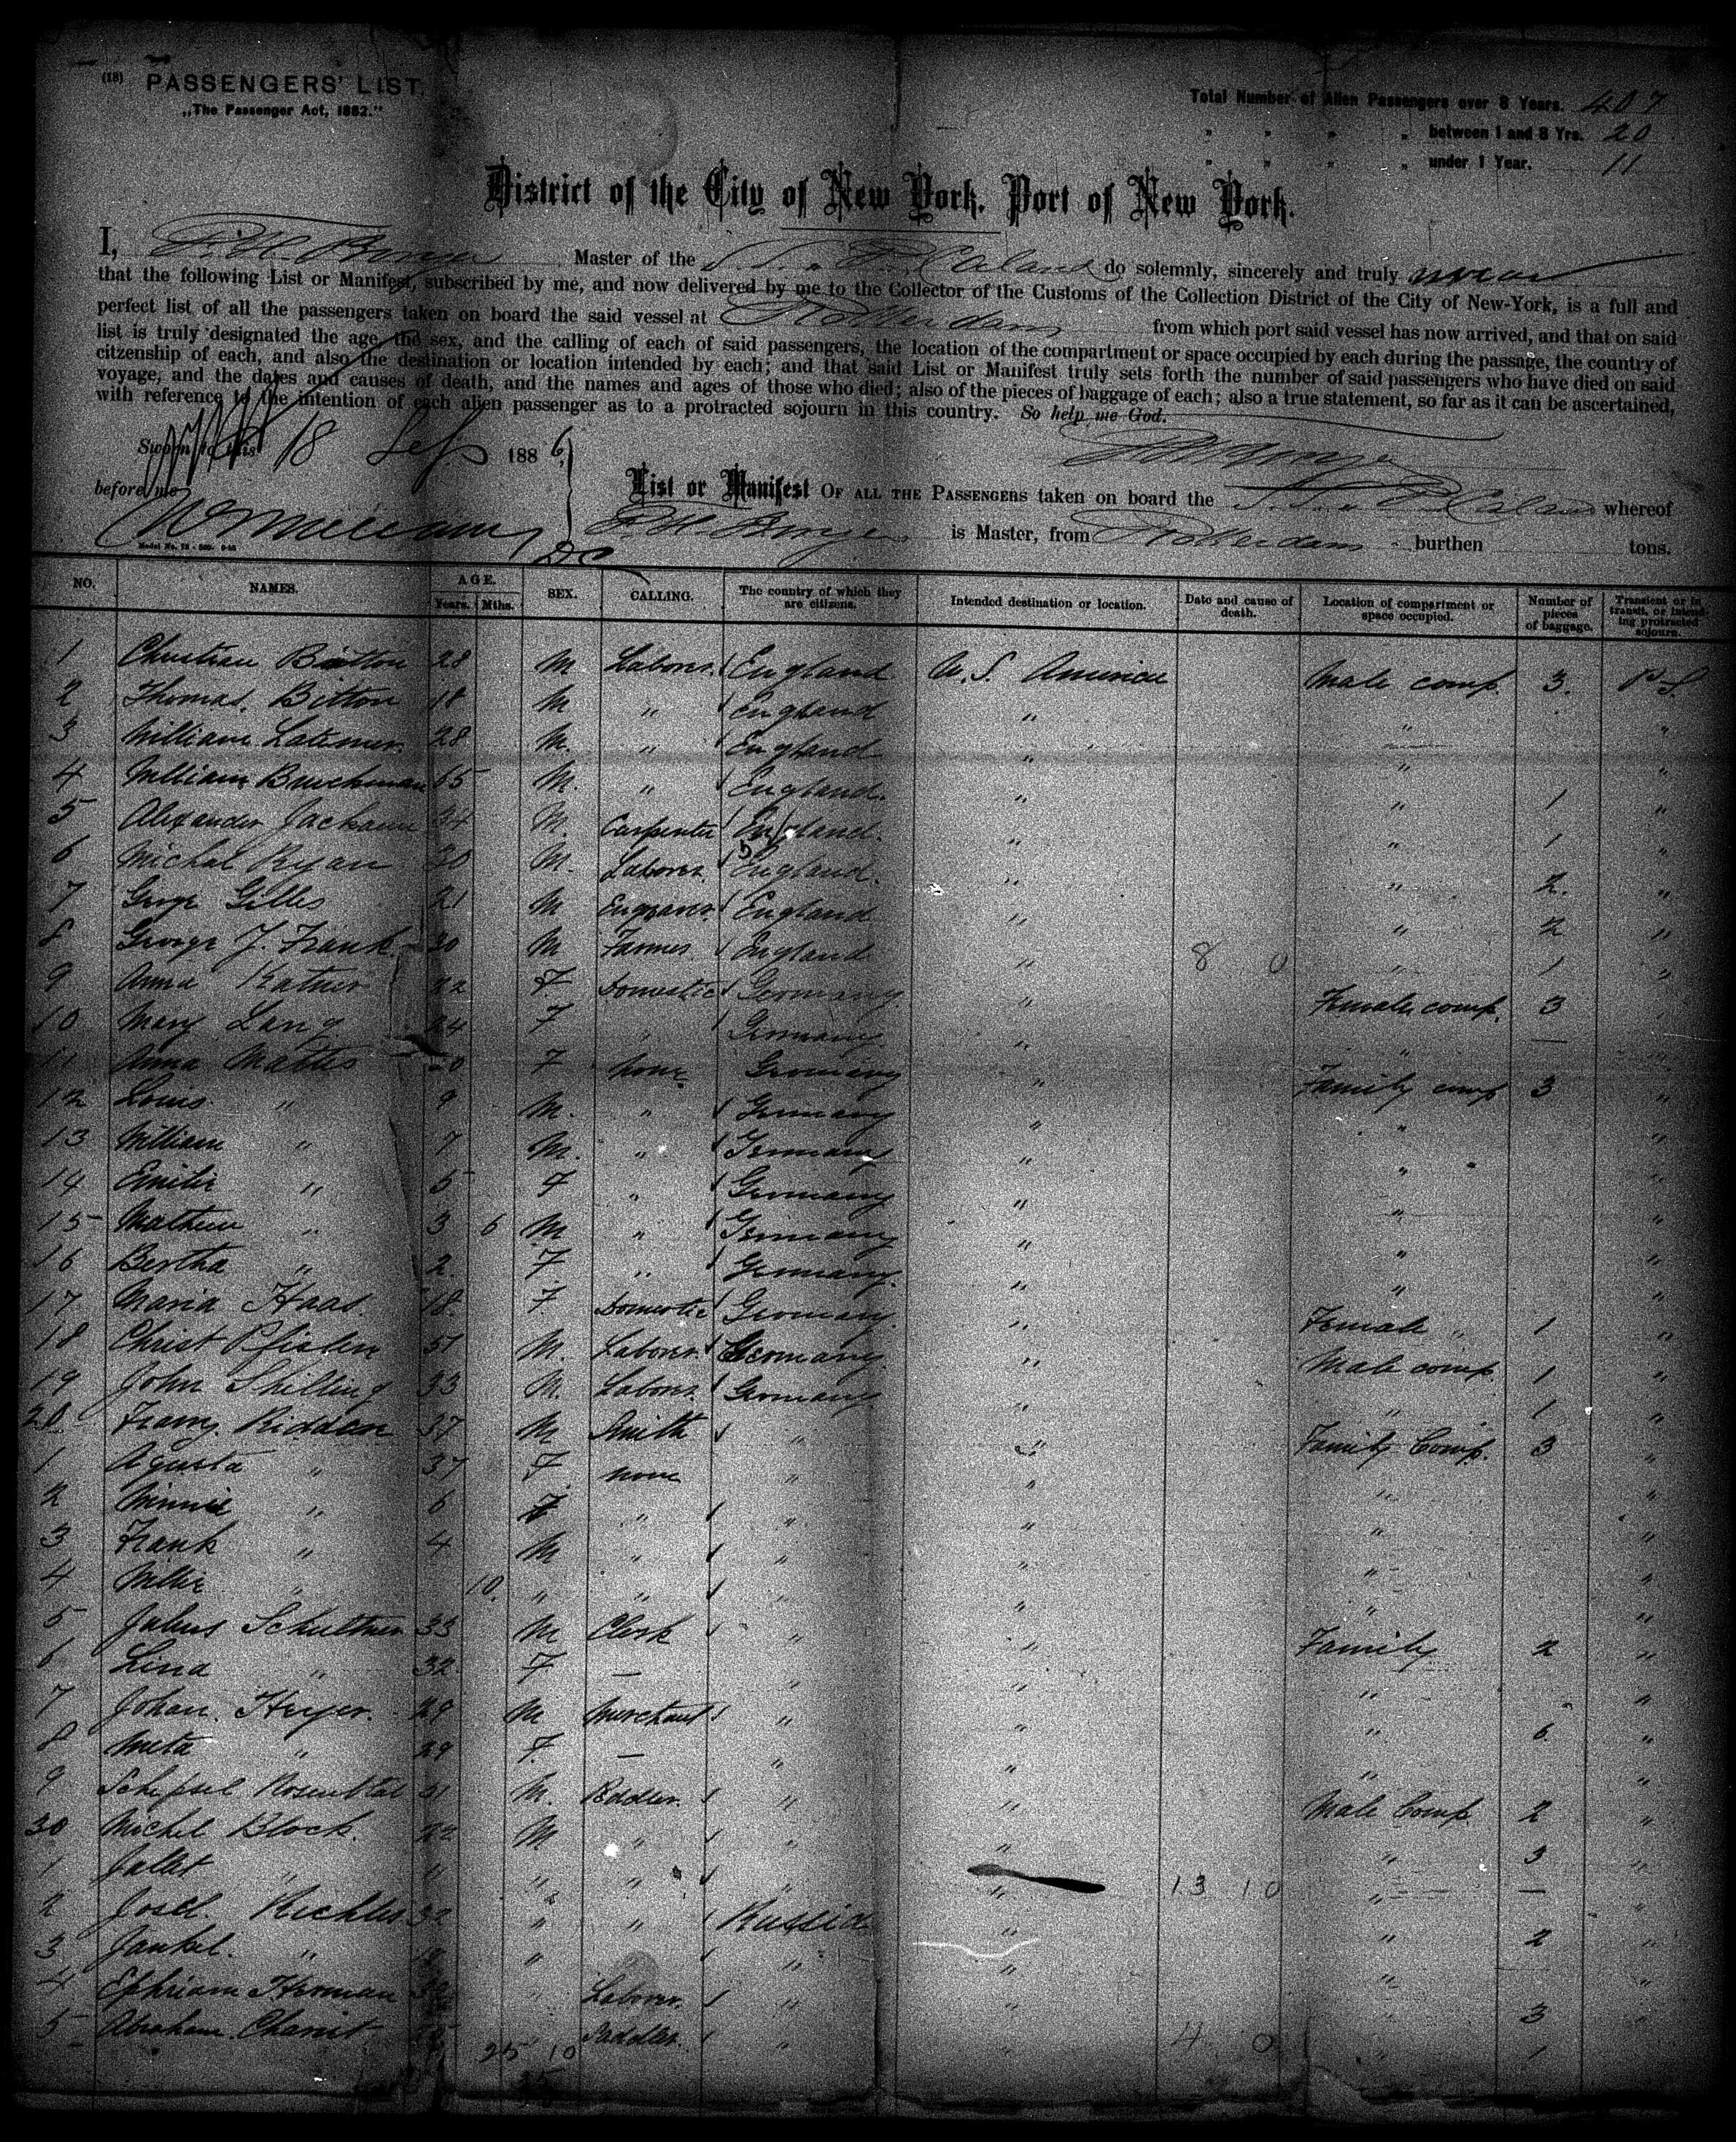 (18) PASSENGERS' LIST.
„The Passenger Act, 1882."
Total Number of Alien Passengers over 8 Years. 407
" " " " between 1 and 8 Yrs. 20
" " " " under 1 Year. 11
District of the City of New York. Port of New York.
I, Master of the S.S. P. Caland do solemnly, sincerely and truly swear
that the following List or Manifest, subscribed by me, and now delivered by me to the Collector of the Customs of the Collection District of the City of New-York, is a full and
perfect list of all the passengers taken on board the said vessel at Rotterdam from which port said vessel has now arrived, and that on said
list is truly designated the age, the sex, and the calling of each of said passengers, the location of the compartment or space occupied by each during the passage, the country of
citzenship of each, and also the destination or location intended by each; and that said List or Manifest truly sets forth the number of said passengers who have died on said
voyage, and the dates and causes of death, and the names and ages of those who died; also of the pieces of baggage of each; also a true statement, so far as it can be ascertained,
with reference to the intention of each alien passenger as to a protracted sojourn in this country. So help me God.
Sworn to this 18 Sep 1886
before me
List or Manifest OF ALL THE PASSENGERS taken on board the S.S. P. Caland whereof
is Master, from Rotterdam burthen tons.
NO. NAMES. AGE. Years. Mths. SEX. CALLING. The country of which they are citizens. Intended destination or location. Date and cause of death. Location of compartment or space occupied. Number of pieces of baggage. Transient or in transit, or intending protracted sojourn.
1 Christian Bitton 28 M Laborer England U.S. America Male comp. 3. P S
2 Thomas Bitton 18 M " England " " "
3 William Latimer 28 M. " England " " "
4 William 65 M. " England. " " 1 "
5 Alexander Jackson M. Carpenter England. " " 1 "
6 Michal Ryan 30 M. Laborer. England. " " 2. "
7 George Gilles 21 M Engraver England " " 2 "
8 George J. Frank 30 M Farmer England " 8 0 " 1 "
9 Anna Katner 22 F Domestic Germany " Female comp. 3 "
10 Mary Lang 24 F " Germany " " — "
11 Anna Mattes F none Germany " Family comp 3 "
12 Louis " 9 M. " Germany " " "
13 William " 7 M. " Germany " " "
14 Emilie " 5 F " Germany " " "
15 Mathew " 3 6 M " Germany " " "
16 Bertha " 2 F " Germany. " " "
17 Maria Haas. 18. F Domestic Germany. " Female " 1 "
18 Christ 51 M. Laborer Germany. " Male comp 1 "
19 John Shilling 33 M. Laborer Germany " " 1 "
20 37 M Smith " " Family Comp. 3 "
1 Agusta " 37 F none " " " "
2 Minnie " 6 F " " " " "
3 Frank " 4 M " " " " "
4 " 10. " " " " " "
5 Julius 33 M Clerk " " Family 2 "
6 Lina " 32 F — " " " "
7 Johan. Heyer. 29 M Merchant " " " 6. "
8 Meta " 29 F. — " " " "
9 31 M. Peddler. " " Male Comp. 2 "
30 Michel Block. 22 M " " " " 3 "
1 " " " " " 13 10 " — "
2 32 " " Russia " " 2 "
3 Jankel. " " " " " "
4 Ephriam Herman " Laborer. " " " 3 "
5 Abraham " Peddler. " " 4 0 " 1
25 10